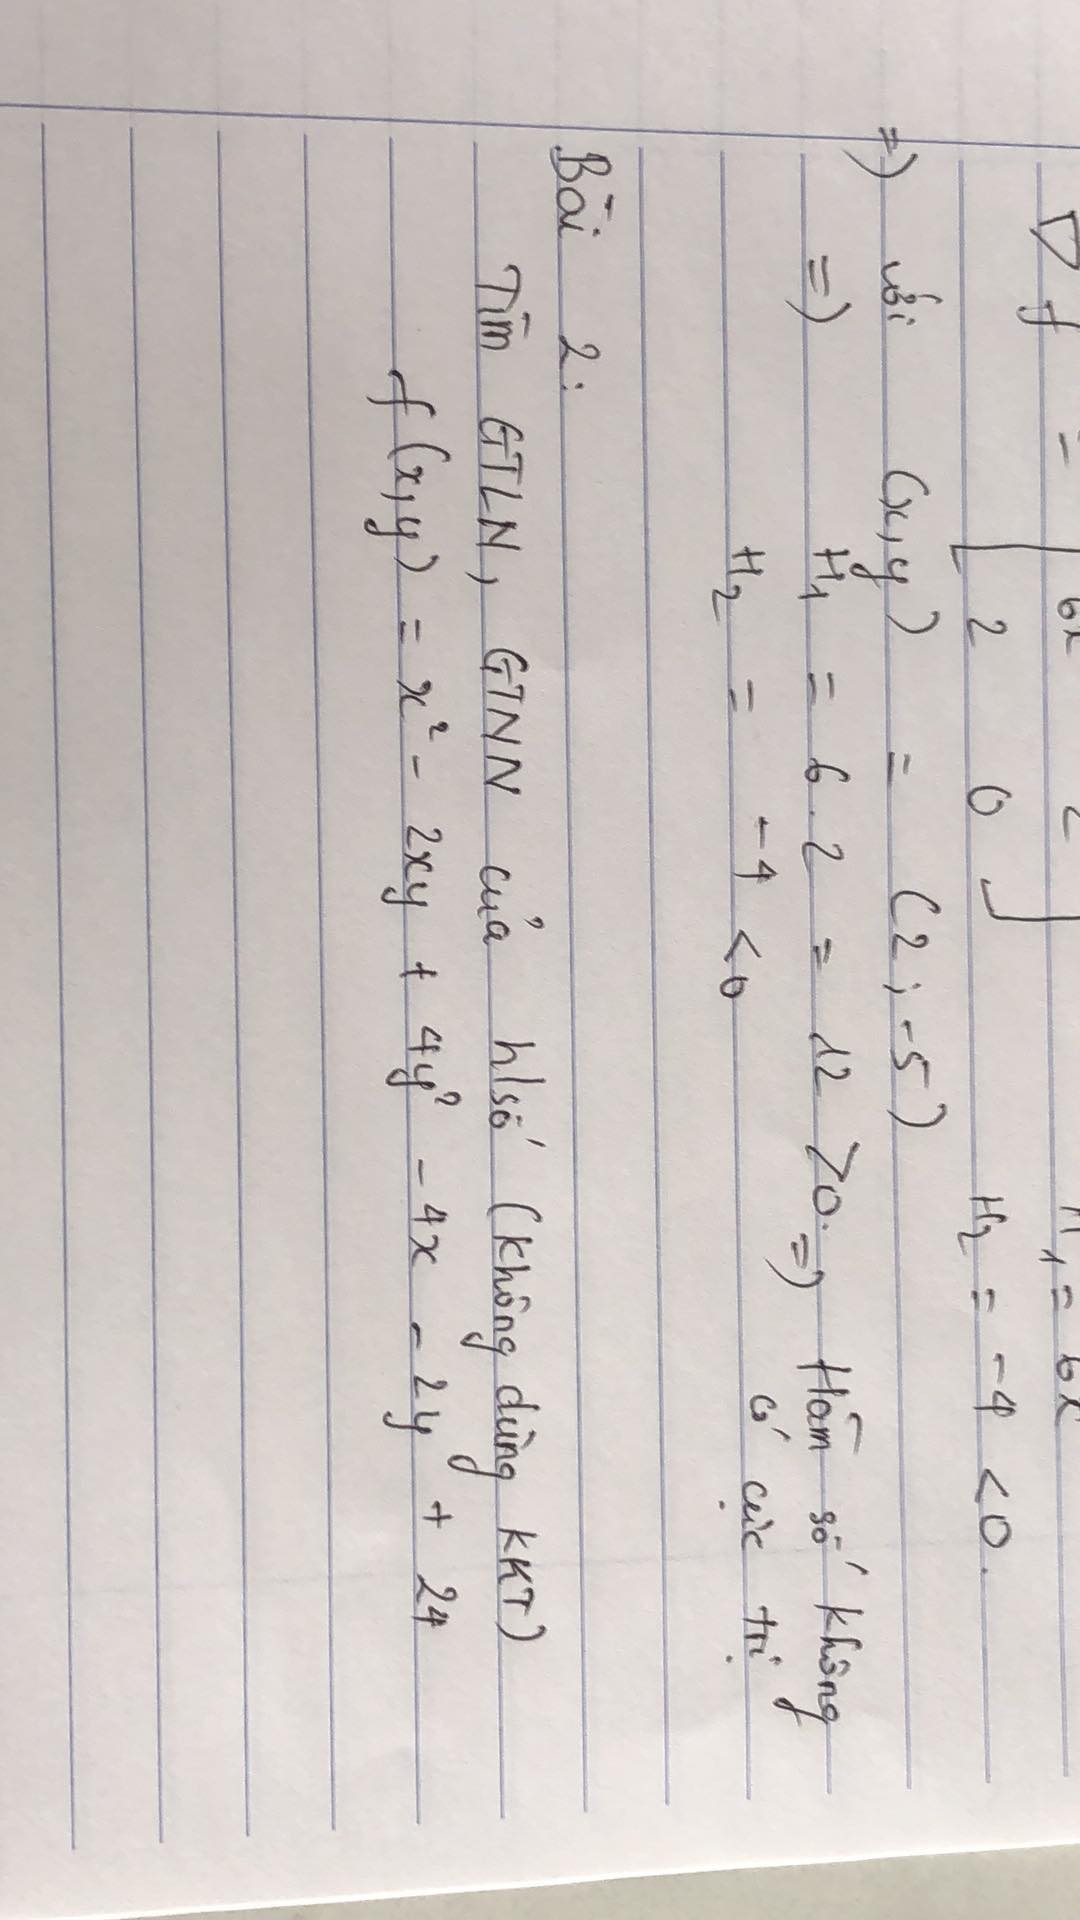 ∇f = [ 6x 2
2 0 ] H₂ = -4 < 0.
=) với (x,y) = (2; -5)
=) H₁ = 6.2 = 12 > 0. =) Hàm số không
H₂ = -4 < 0 có cực trị
Bài 2:
Tìm GTLN, GTNN của h/số (không dùng KKT)
f(x,y) = x² - 2xy + 4y² - 4x - 2y + 24